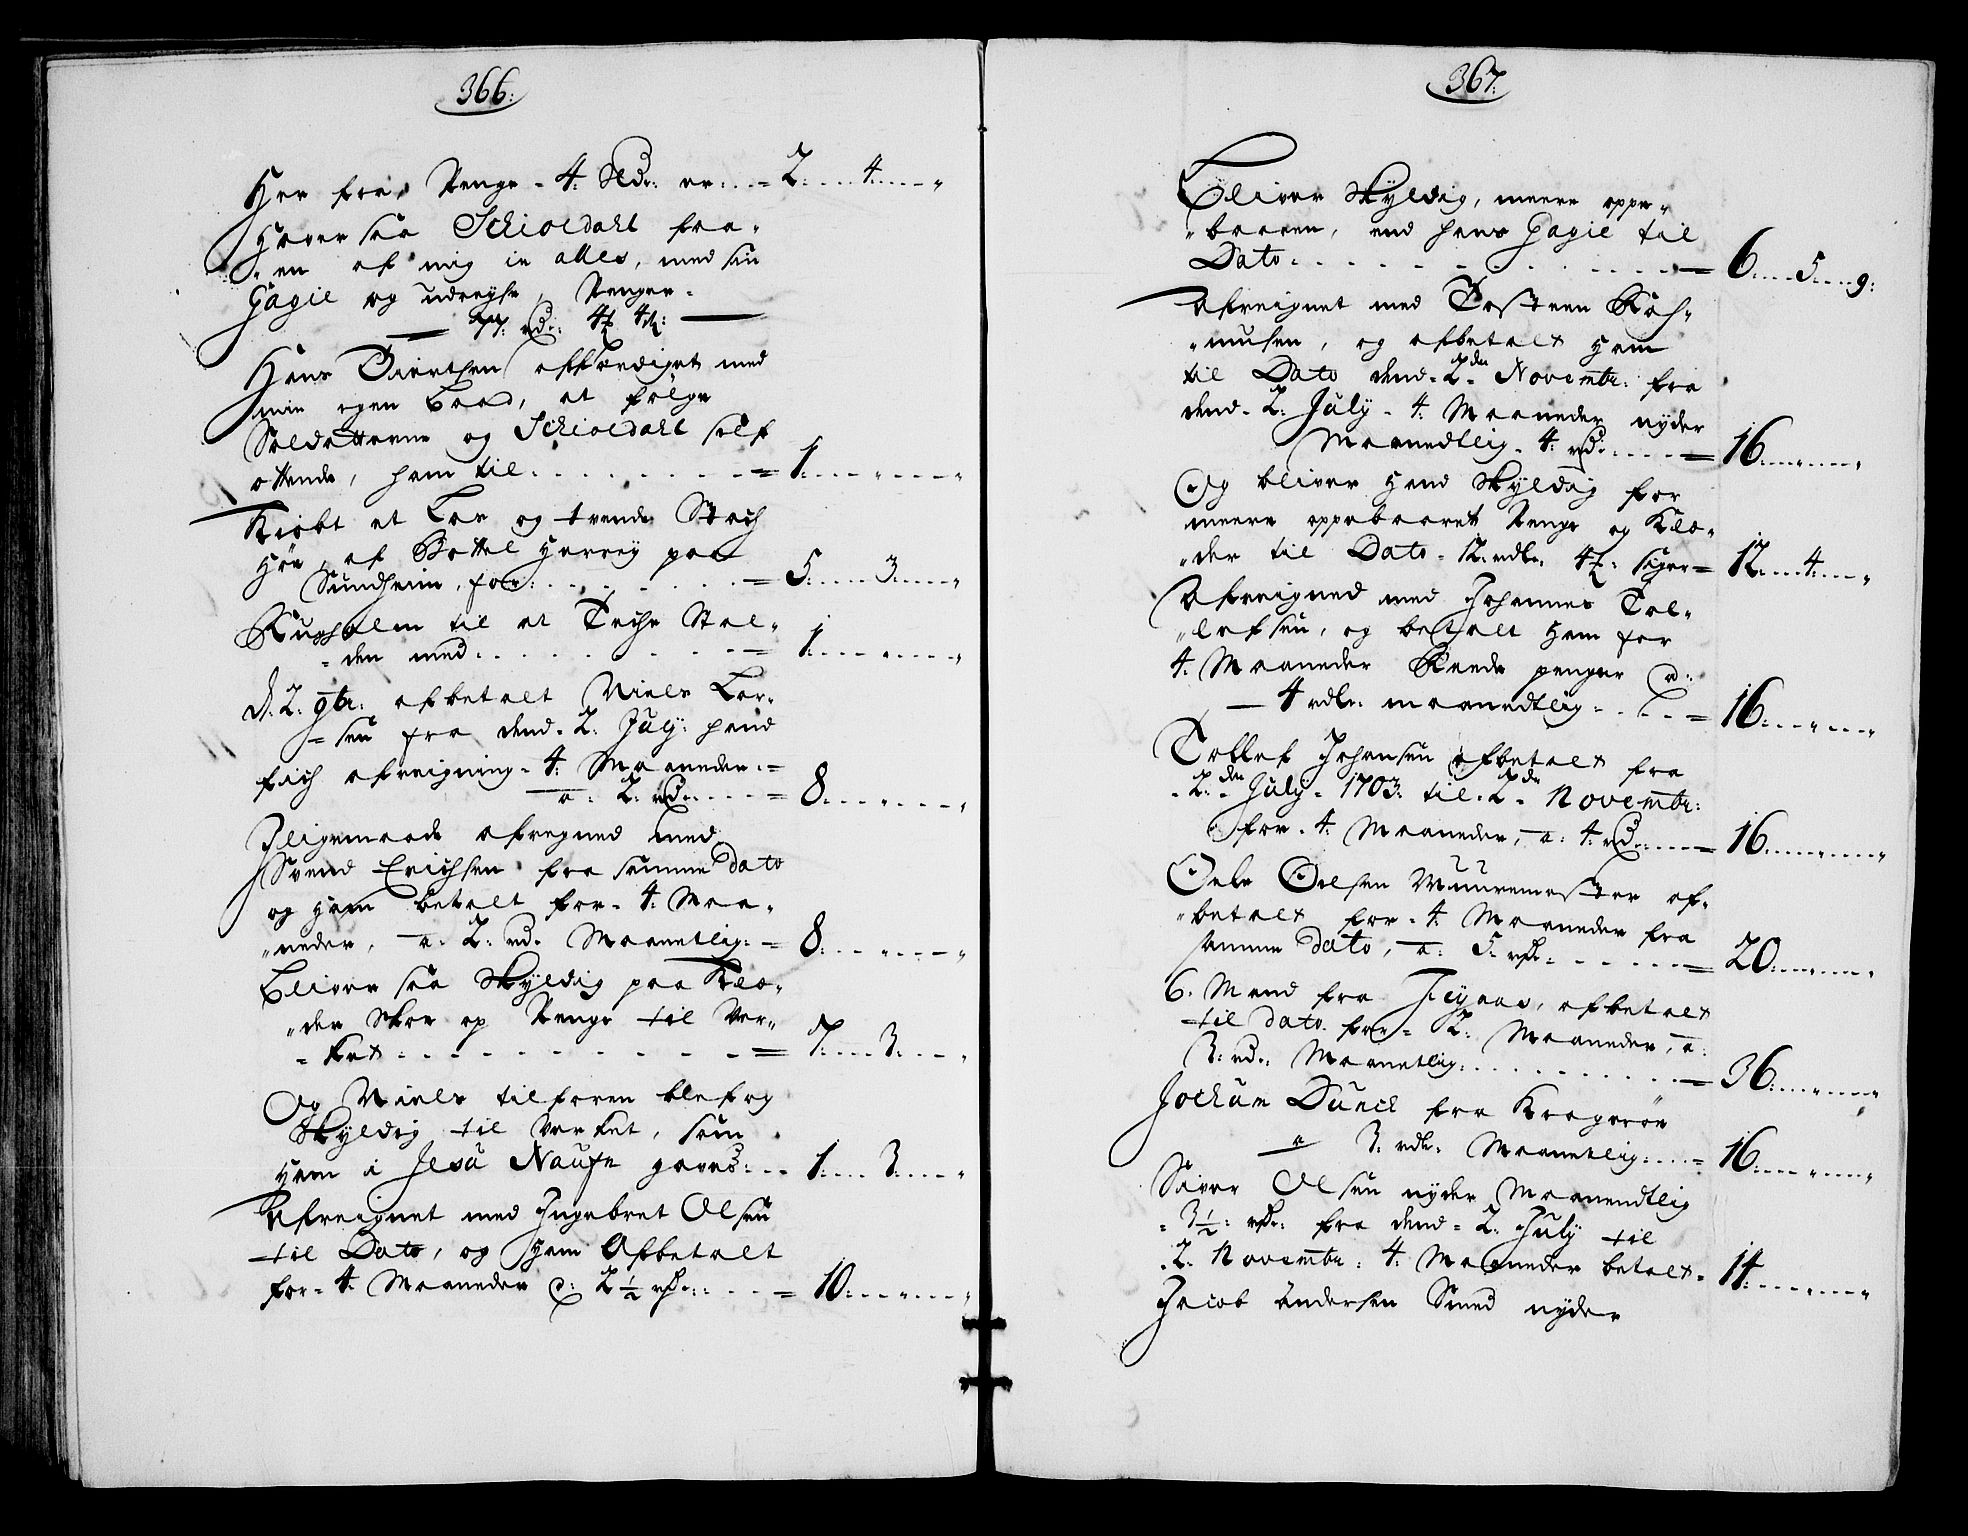 366:
Her fra, Penge - 4. Sldr: er:.. = 2:....4:..."
Haver saa Schioldahl faa-
"en af mig in alles, med sin
Gagie og udreyse, Penger.
77. rdr: 4ß
Hans Giertsen affærdiget med
min egen Baad, at følge
Soldatterne og Schioldahl self
ottende, ham til . . . . . . . = 1:..."..."
Kiøbt et Lar og trende Stoch
Hör, af Bottel Herrey paa
Sundheim, for: . . . . . . = 5:....3:..."
til at Teche Stal-
= den med . . . . . . . = 1:..."..."
d. 2. 9br: afbetalt Niels Lar-
= sen fra dend. 2. July: hand
fich afreigning - 4. Maaneder: =
a: 2. rdr: . . . = 8:..."..."
Jligemaade afregned med
Svend Erichsen fra samme Dato
og ham betalt for - 4. Maa-
"neder, a. 2. rd. Maanetlig: = 8:..."..."
Bliver saa Skyldig paa Klæ-
"der Skoe og Penge til Ver-
= ket: . . . . . . . . = 7:....3:..."
Og Niels tilforen blef og
Skyldig til Verket, som
ham i Jesu Naufn gaves: .. 1:....3:..."
Afreignet med Ingebret Olsen
til Dato, og ham Afbetalt
for - 4. Maaneder a: 2 1/2 rdr: . . = 10:..."..."
367.
Bliver Skyldig, meere oppe-
"baaren, end hans Gagie til
Dato . . . . . . . . . = 6:....5:....9:
Afreignet med Tosteen Ras-
= musen, og afbetalt ham
til Dato dend. 2den Novembr: fra
dend. 2. July. 4. Maaneder nyder
Maanedtlig. 4. rdr: . . . = 16:..."..."
Og bliver Hand Skyldig for
meere oppebaarett Penge og Klæ-
"der til Dato. 12. rdlr. 4ß: siger = 12:....4:..."
Afreigned med Johannes Tol-
"lefsen, og betalt ham for
4. Maaneder Reede penger a:
4 rdlr: maanedtlig: . . . = 16:..."..."
Tollef Johansen afbetalt fra
- 2den July. 1703: til. 2den Novembr:
for. 4. Maaneder, a: 4. rdr: . . = 16:..."..."
Oele Oelsen Muuremester af-
"betalt for. 4. Maaneder fra
samme Dato, a: 5. rdr: . . . . = 20:..."..."
6. Mand fra afbetalt
til dato. for = 2. Maaneder, a:
3: rd. Maanetlig: . . . . . . = 36:..."..."
Jochum Dunch fra Kragerøe
a 3. rdlr. Maanetlig: . . = 16:..."..."
Siver Olsen nyder Maanendtlig
= 3 1/2: rdr: fra dend = 2. July til
. 2. Novembr: 4. Maaneder betalt. 14:..."..."
Jacob Andersen Smed nyder